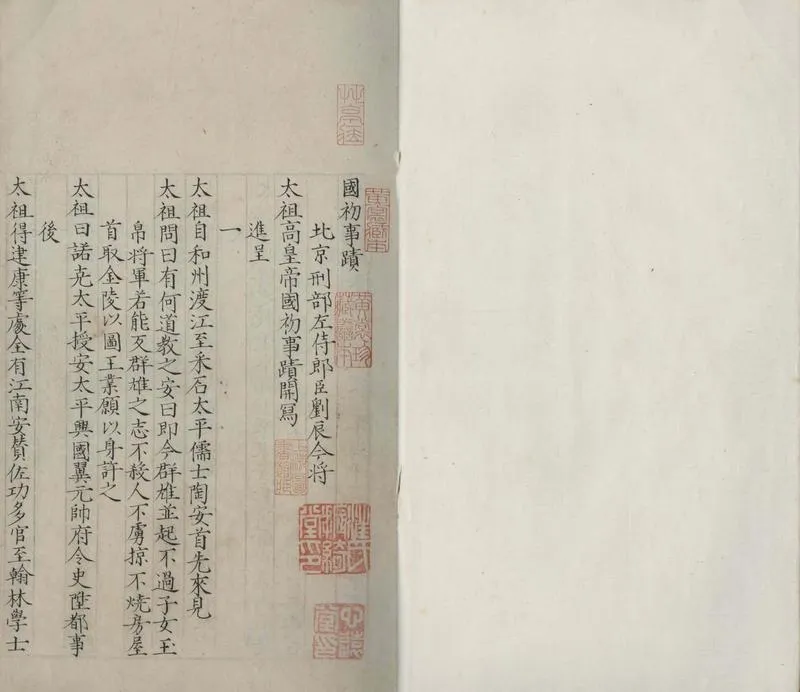 國初事蹟
北京刑部左侍郎臣劉辰今將
太祖高皇帝國初事蹟開寫
進呈
一
太祖自和州渡江至采石太平儒士陶安首先來見
太祖問曰有何道教之安曰即今群雄並起不過子女玉
帛將軍若能反群雄之志不殺人不虜掠不燒房屋
首取金陵以圖王業願以身許之
太祖曰諾克太平授安太平興國翼元帥府令史陞都事
後
太祖得建康等處全有江南安贊佐功多官至翰林學士